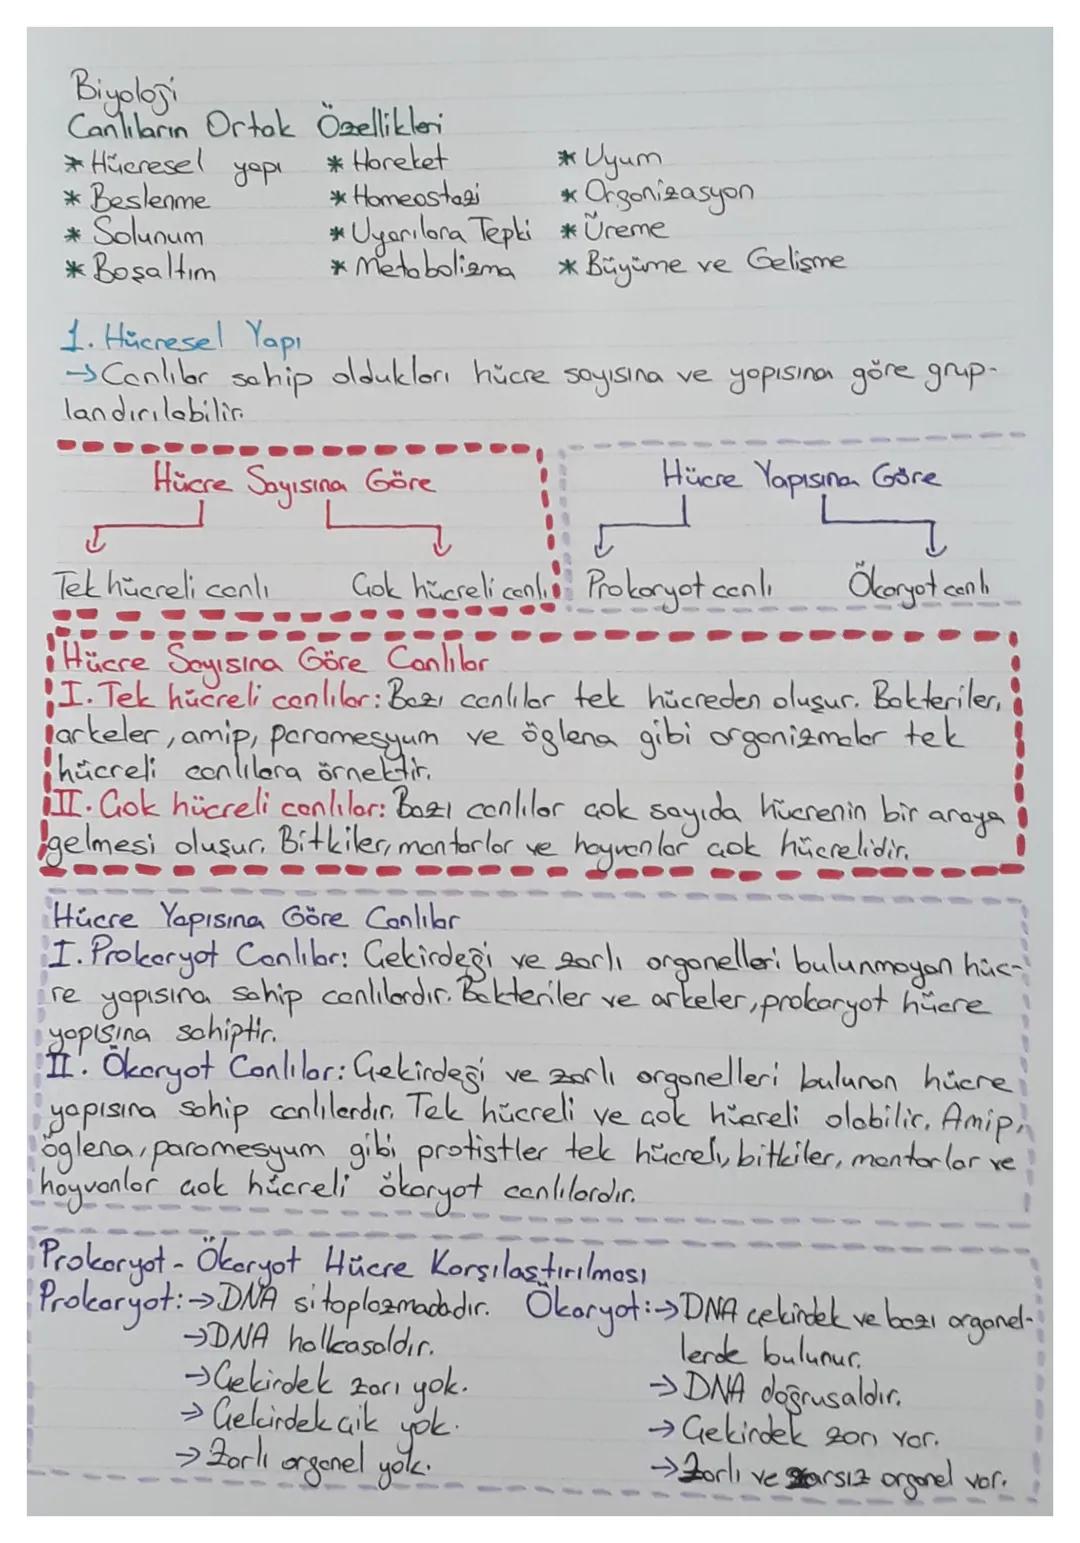 Biyoloji
Canlıların Ortak Özellikleri
* Hücresel yapı * Hareket * Uyum
* Beslenme * Homeostazi * Organizasyon
* Solunum * Uyarılara Tepki * Üreme
* Boşaltım * Metabolizma * Büyüme ve Gelişme
1. Hücresel Yapı
→ Canlılar sahip oldukları hücre sayısına ve yapısına göre grup-
landırılabilir.
Hücre Sayısına Göre
Tek hücreli canlı Çok hücreli canlı
Hücre Yapısına Göre
Prokaryot canlı Ökaryot canlı
Hücre Sayısına Göre Canlılar
I. Tek hücreli canlılar: Bazı canlılar tek hücreden oluşur. Bakteriler,
arkeler, amip, paramesyum ve öglena gibi organizmalar tek
hücreli canlılara örnektir.
II. Çok hücreli canlılar: Bazı canlılar çok sayıda hücrenin bir araya
gelmesi oluşur. Bitkiler, mantarlar ve hayvanlar çok hücrelidir.
Hücre Yapısına Göre Canlılar
I. Prokaryot Canlılar: Çekirdeği ve zarlı organelleri bulunmayan hüc-
re yapısına sahip canlılardır. Bakteriler ve arkeler, prokaryot hücre
yapısına sahiptir.
II. Ökaryot Canlılar: Çekirdeği ve zarlı organelleri bulunan hücre
yapısına sahip canlılardır. Tek hücreli ve çok hücreli olabilir. Amip,
öglena, paramesyum gibi protistler tek hücreli, bitkiler, mantarlar ve
hayvanlar çok hücreli ökaryot canlılardır.
Prokaryot - Ökaryot Hücre Karşılaştırılması
Prokaryot: → DNA sitoplazmadadır.
→ DNA halkasaldır.
→ Çekirdek zarı yok.
→ Çekirdekçik yok.
→ Zarlı organel yok.
Ökaryot: → DNA çekirdek ve bazı organel-
lerde bulunur.
→ DNA doğrusaldır.
→ Çekirdek zarı var.
→ Zarlı ve zarsız organel var.